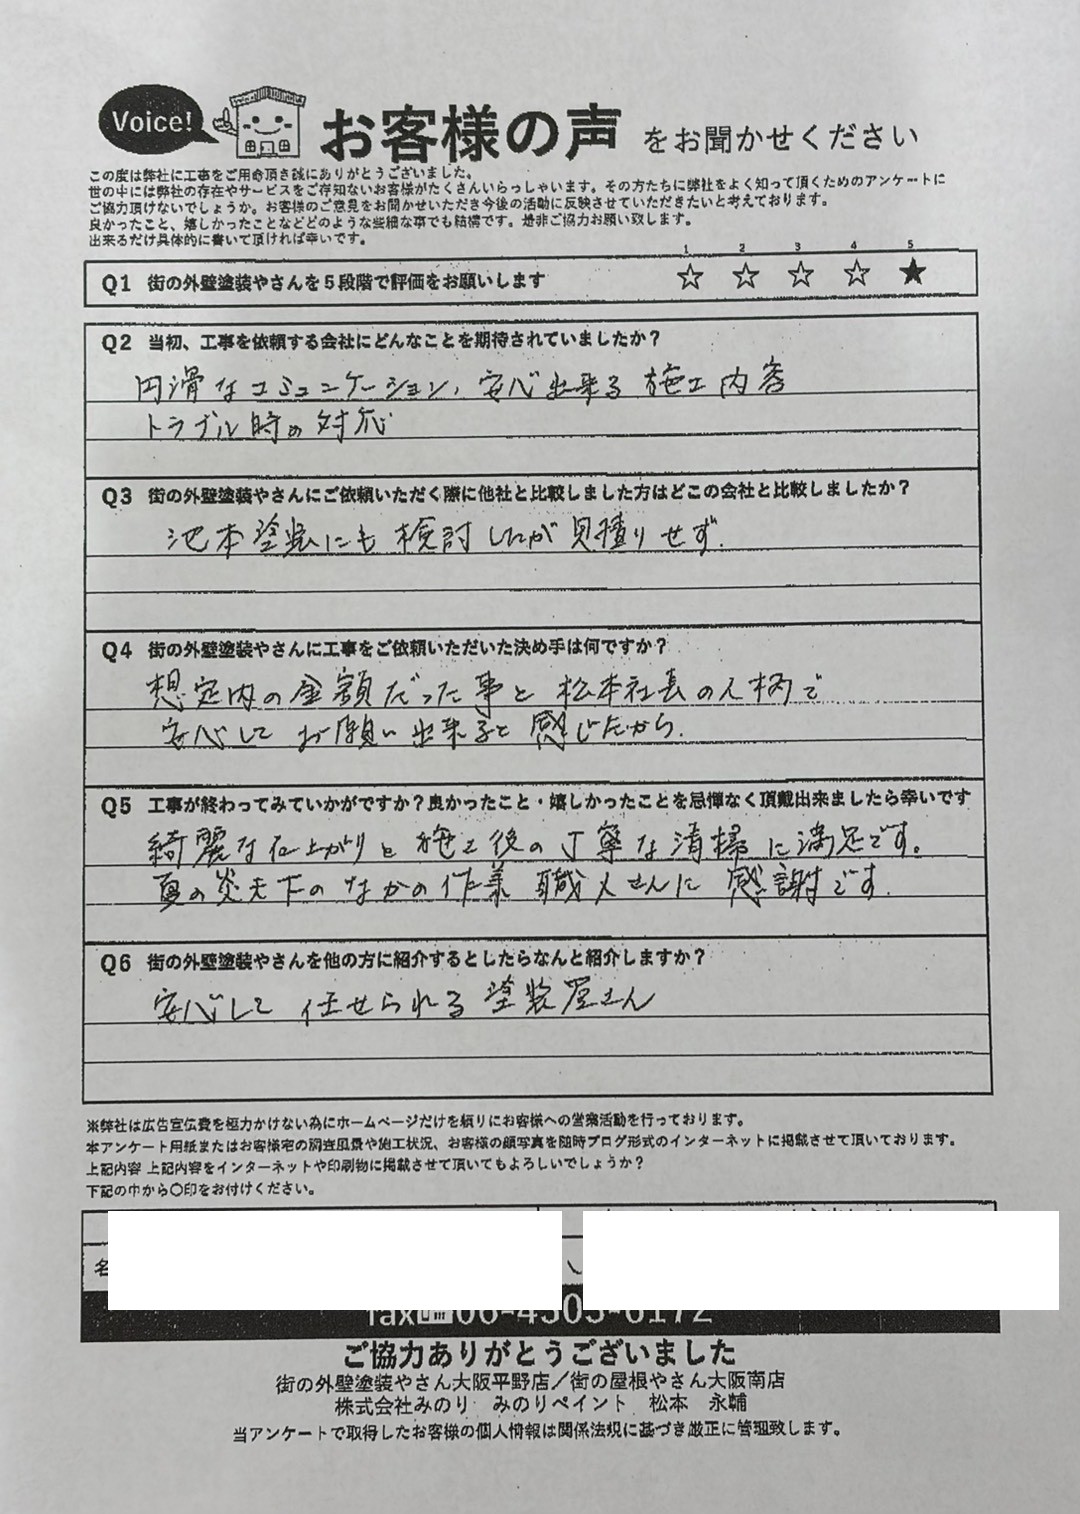 Voice!
お客様の声 をお聞かせください
この度は弊社に工事をご用命頂き誠にありがとうございました。
世の中には弊社の存在やサービスをご存知ないお客様がたくさんいらっしゃいます。その方たちに弊社をよく知って頂くためのアンケートに
ご協力頂けないでしょうか。お客様のご意見をお聞かせいただき今後の活動に反映させていただきたいと考えております。
良かったこと、嬉しかったことなどどのような些細な事でも結構です。是非ご協力お願い致します。
出来るだけ具体的に書いて頂ければ幸いです。
1 2 3 4 5
Q1 街の外壁塗装やさんを5段階で評価をお願いします ☆ ☆ ☆ ☆ ★
Q2 当初、工事を依頼する会社にどんなことを期待されていましたか？
円滑なコミュニケーション、安心出来る施工内容
トラブル時の対応
Q3 街の外壁塗装やさんにご依頼いただく際に他社と比較しました方はどこの会社と比較しましたか？
池本塗装にも検討したが見積りせず.
Q4 街の外壁塗装やさんに工事をご依頼いただいた決め手は何ですか？
想定内の金額だった事と松本社長の人柄で
安心してお願い出来ると感じたから.
Q5 工事が終わってみていかがですか？良かったこと・嬉しかったことを忌憚なく頂戴出来ましたら幸いです
綺麗な仕上がりと施工後の丁寧な清掃に満足です。
夏の炎天下のなかの作業 職人さんに感謝です.
Q6 街の外壁塗装やさんを他の方に紹介するとしたらなんと紹介しますか？
安心して任せられる塗装屋さん
※弊社は広告宣伝費を極力かけない為にホームページだけを頼りにお客様への営業活動を行っております。
本アンケート用紙またはお客様宅の調査風景や施工状況、お客様の顔写真を随時ブログ形式のインターネットに掲載させて頂いております。
上記内容 上記内容をインターネットや印刷物に掲載させて頂いてもよろしいでしょうか？
下記の中から〇印をお付けください。
名
fax 06-4303-6172
ご協力ありがとうございました
街の外壁塗装やさん大阪平野店／街の屋根やさん大阪南店
株式会社みのり みのりペイント 松本 永輔
当アンケートで取得したお客様の個人情報は関係法規に基づき厳正に管理致します。